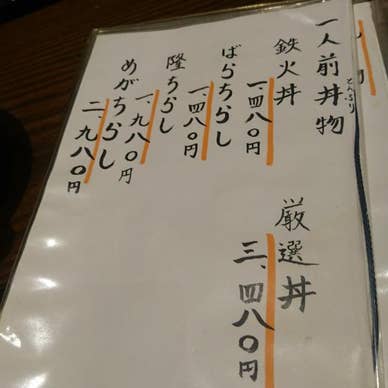 一人前丼物
どんぶり
鉄火丼
一、四八〇円
ばらちらし
一、四八〇円
隆ちらし
一、九八〇円
めがちらし
二、九八〇円
厳選丼
三、四八〇円